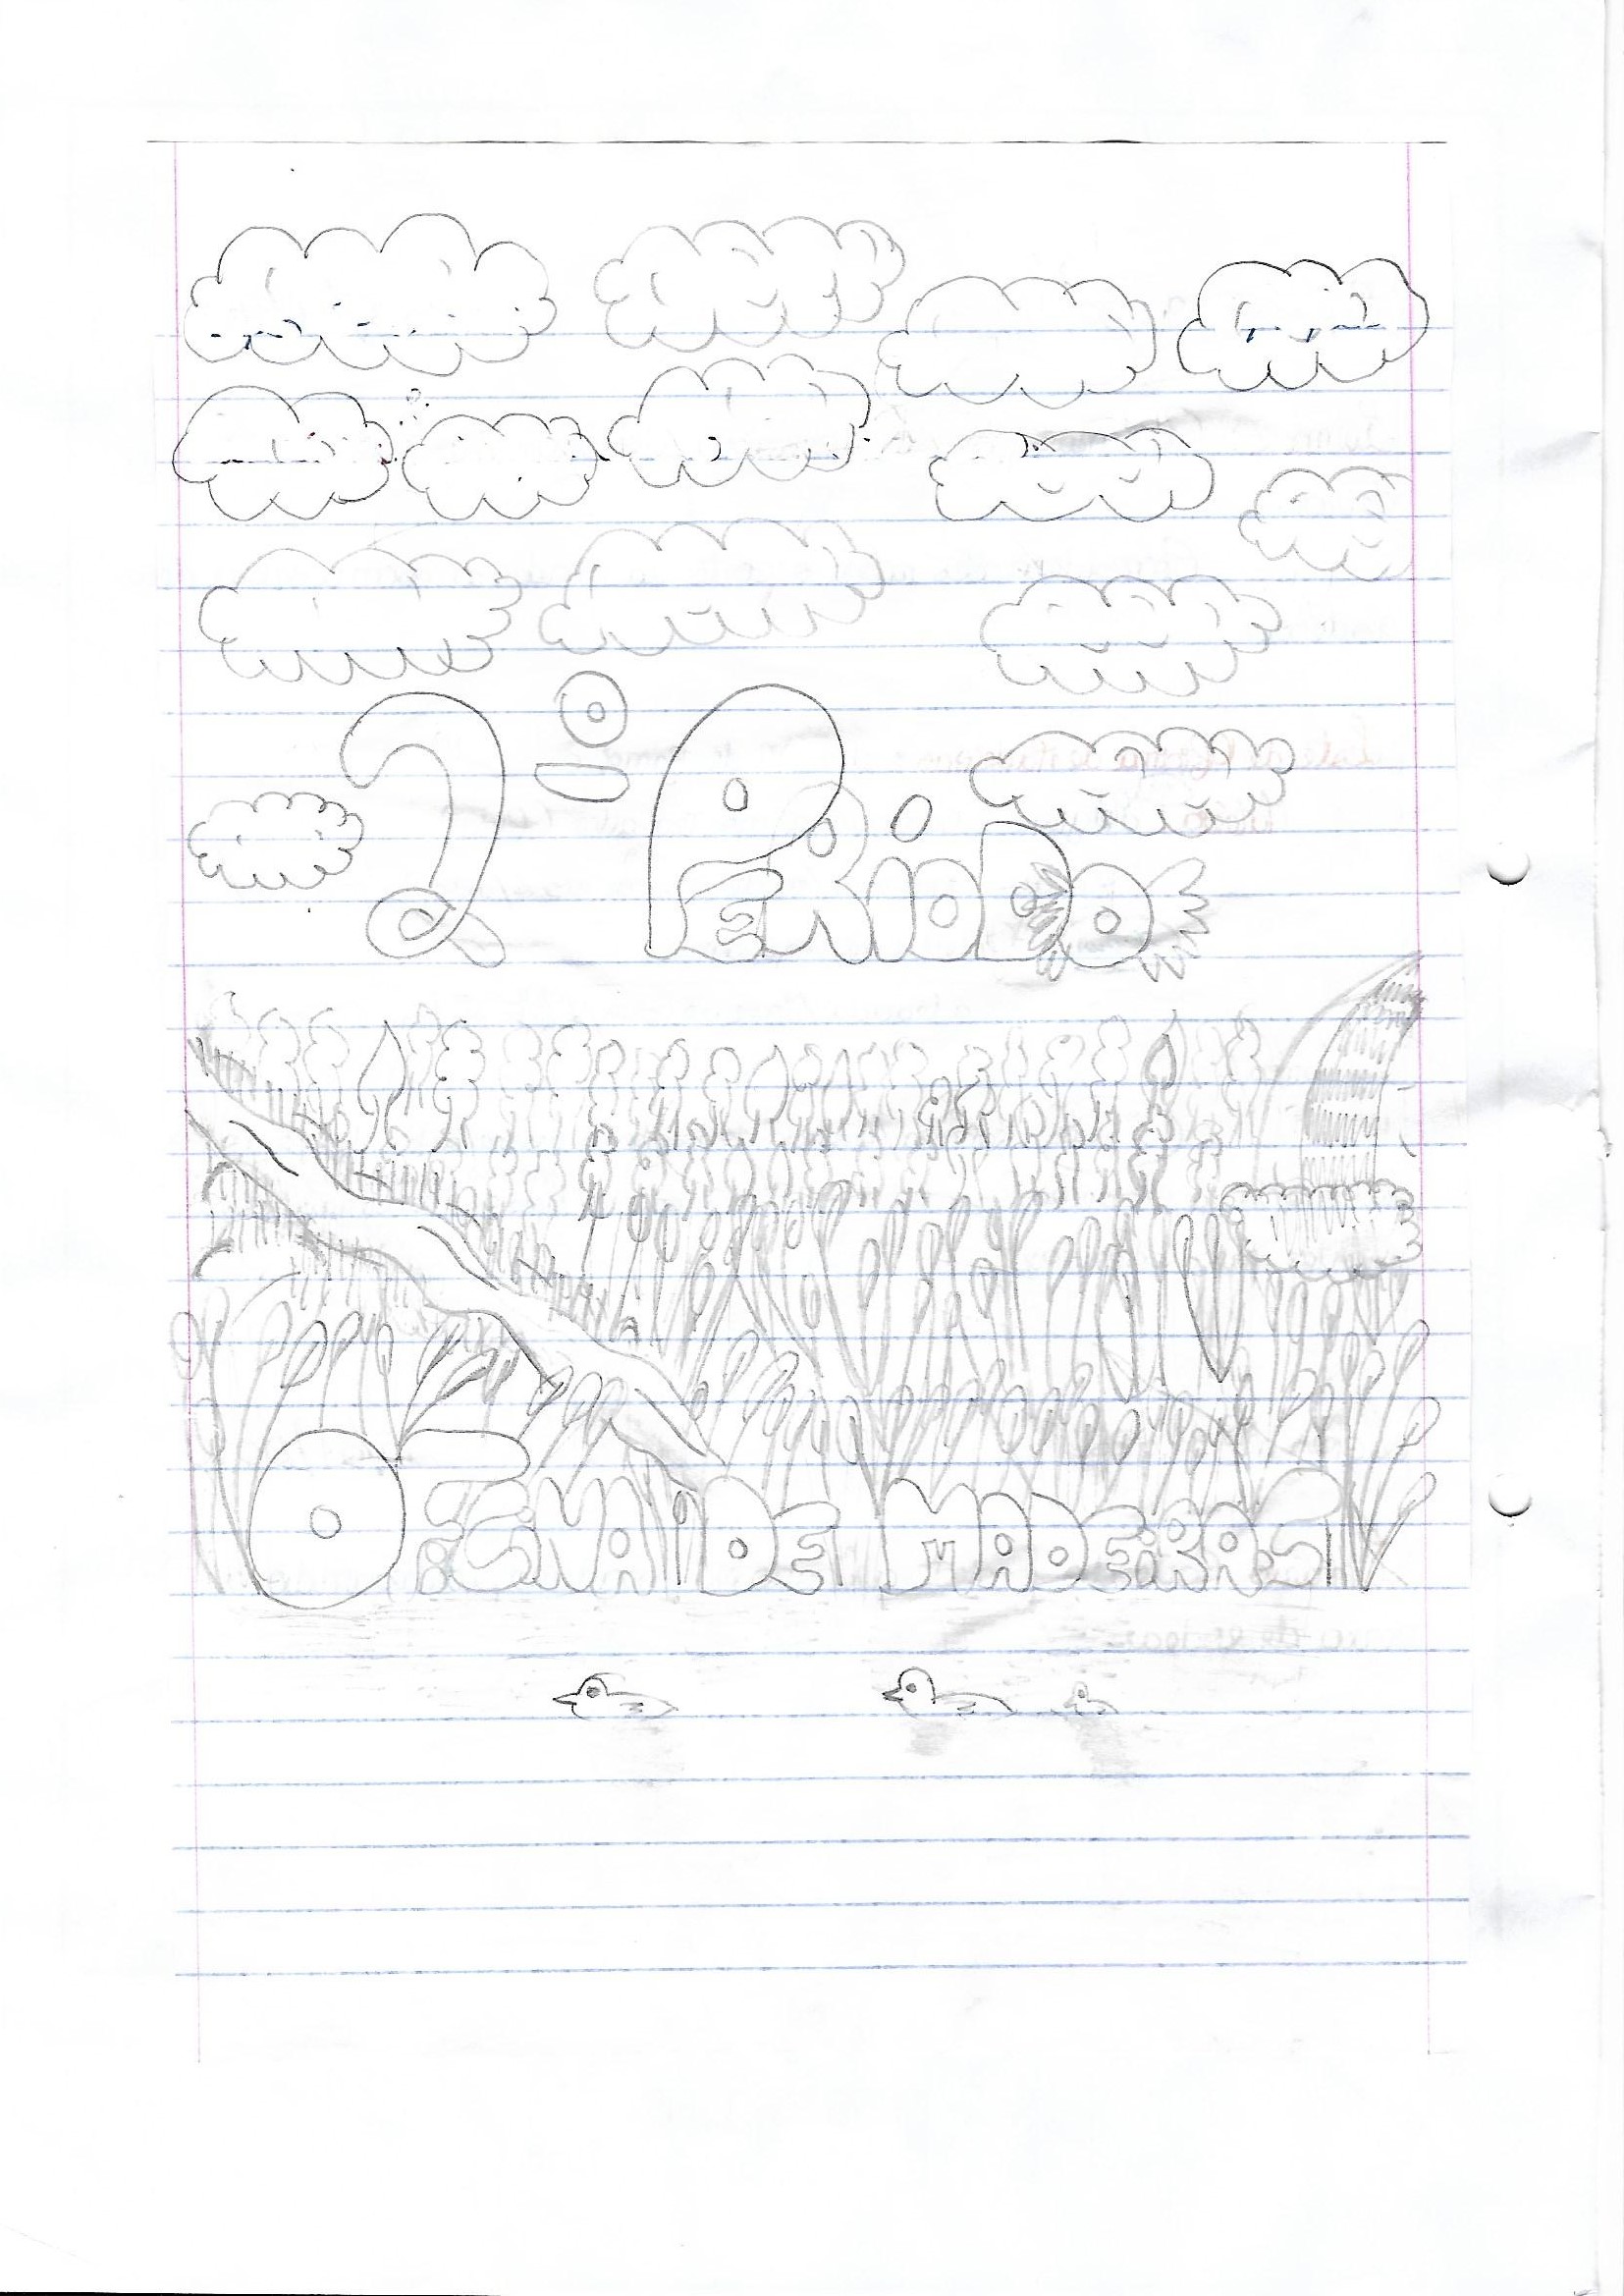 2º PERIODO
OFICINA DE MADEIRAS